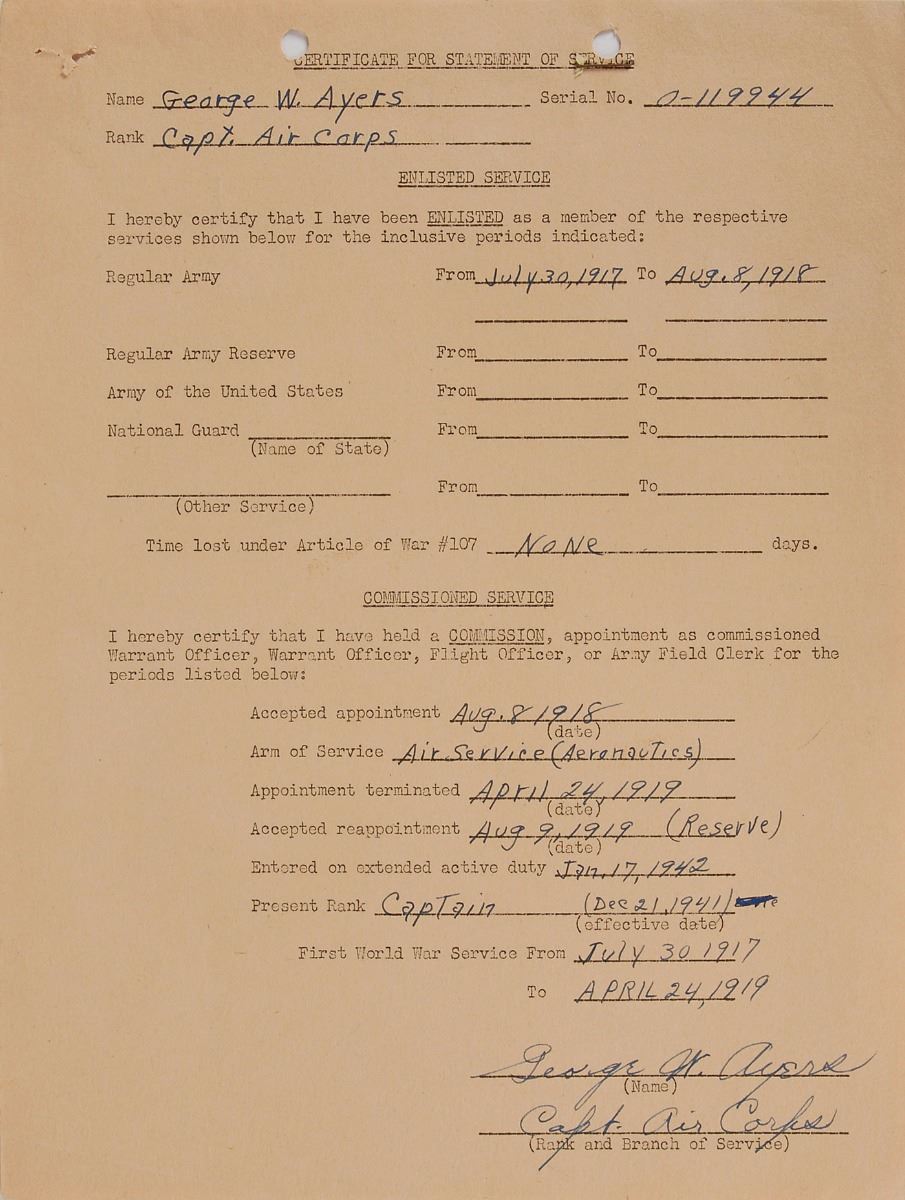 CERTIFICATE FOR STATEMENT OF SERVICE
Name George W. Ayers Serial No. O-119944
Rank Capt. Air Corps
ENLISTED SERVICE
I hereby certify that I have been ENLISTED as a member of the respective
services shown below for the inclusive periods indicated:
Regular Army From July 30, 1917 To Aug. 8, 1918
Regular Army Reserve From To
Army of the United States From To
National Guard From To
(Name of State)
From To
(Other Service)
Time lost under Article of War #107 None days.
COMMISSIONED SERVICE
I hereby certify that I have held a COMMISSION, appointment as commissioned
Warrant Officer, Warrant Officer, Flight Officer, or Army Field Clerk for the
periods listed below:
Accepted appointment Aug. 8 1918
(date)
Arm of Service Air Service (Aeronautics)
Appointment terminated April 24, 1919
(date)
Accepted reappointment Aug 9, 1919 (Reserve)
(date)
Entered on extended active duty Jan. 17, 1942
Present Rank Captain (Dec 21, 1941)
(effective date)
First World War Service From July 30 1917
To APRIL 24, 1919
George W. Ayers
(Name)
Capt. Air Corps
(Rank and Branch of Service)